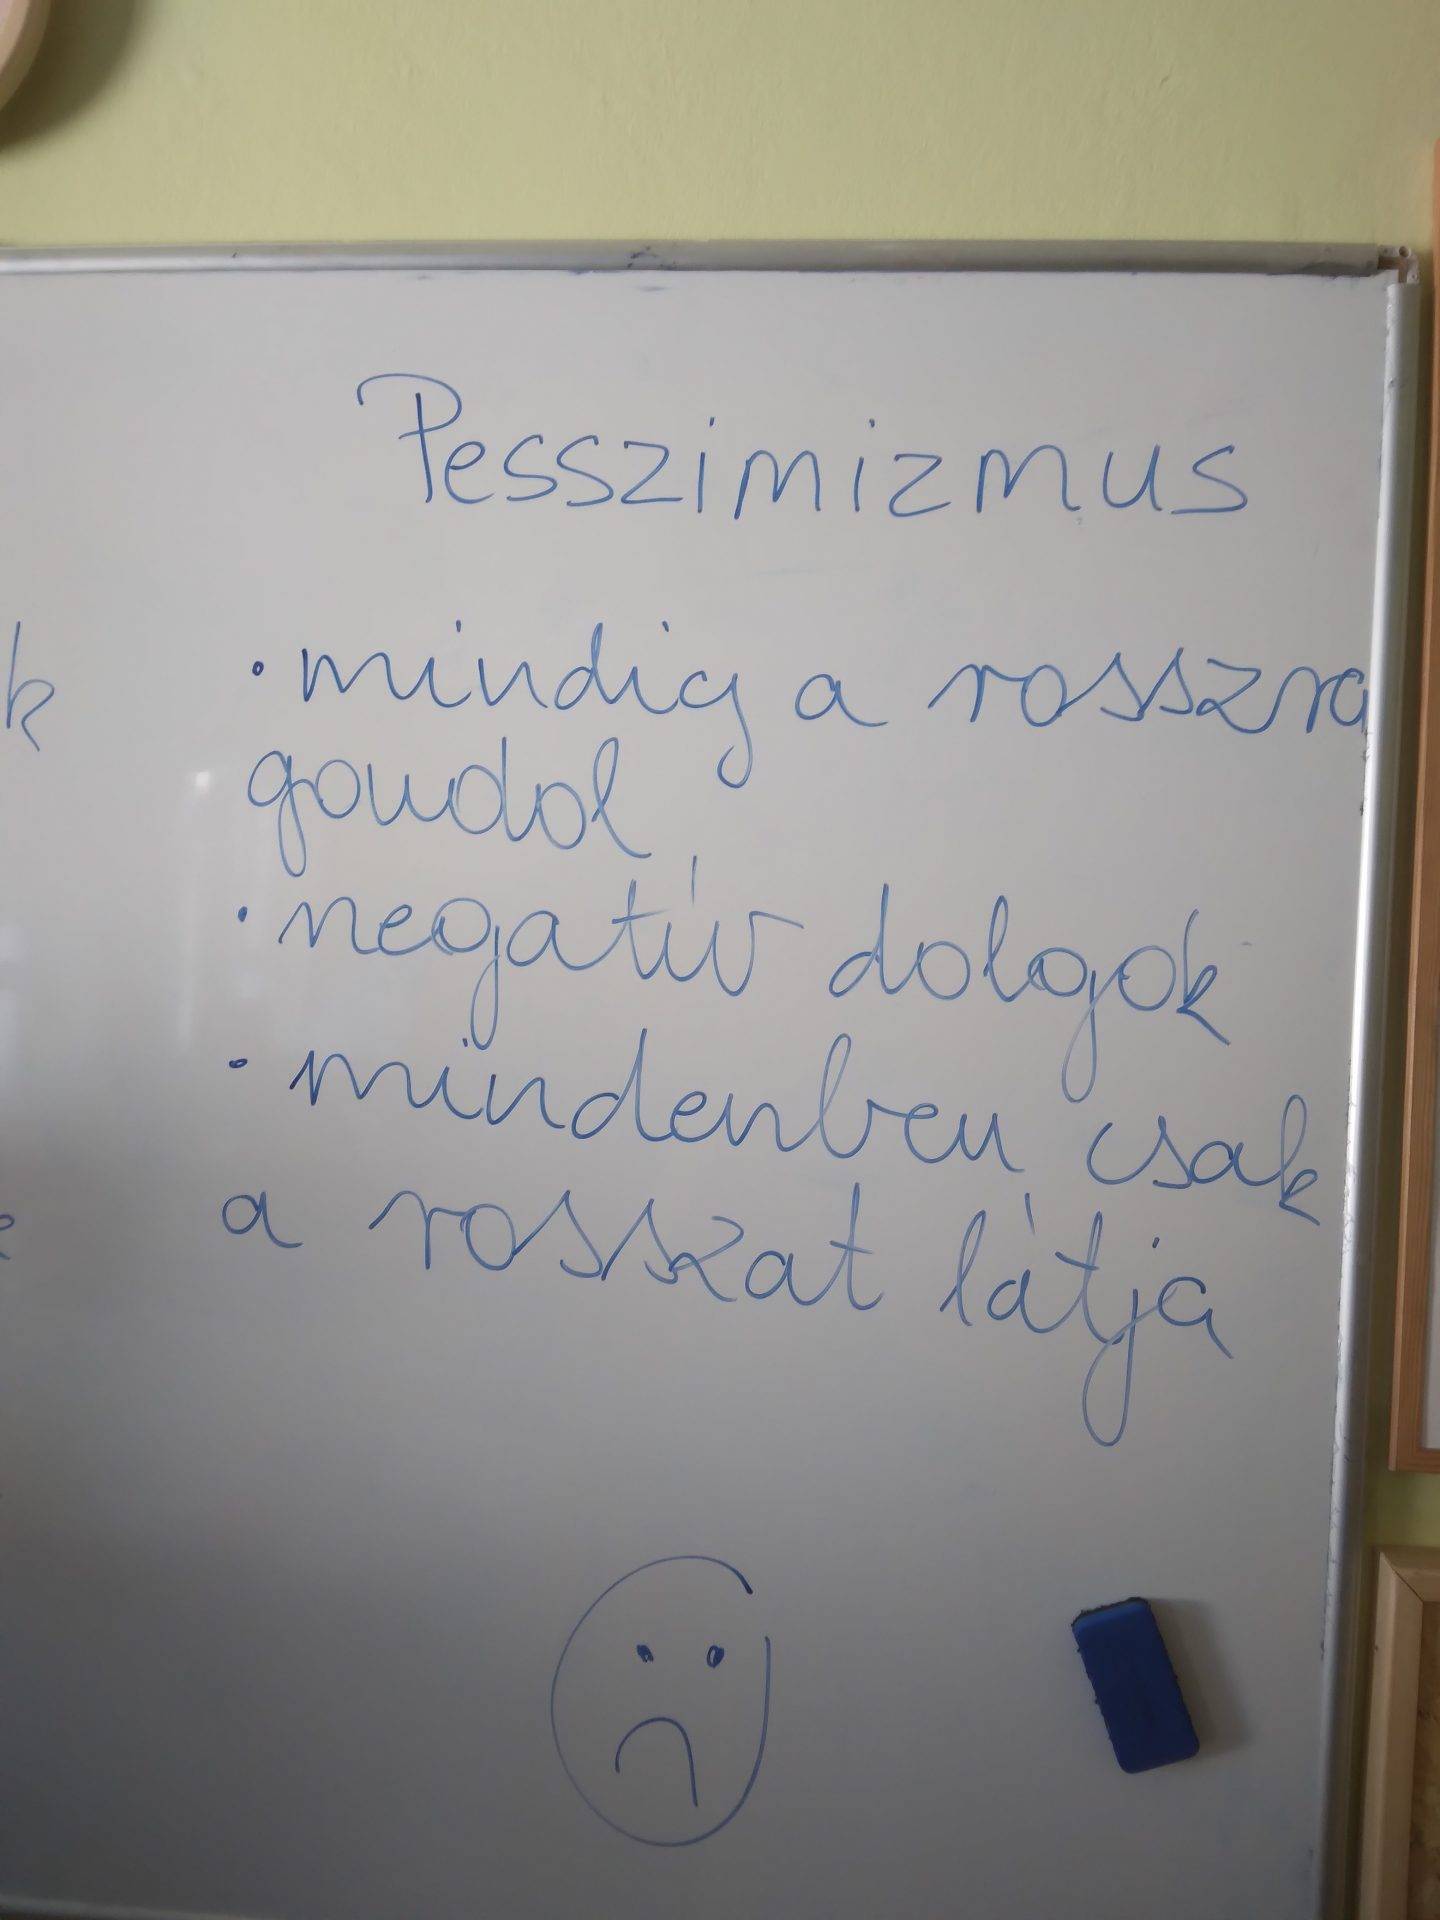 Pesszimizmus
k
• mindig a rosszra
gondol
• negatív dolgok
• mindenben csak
a rosszat látja